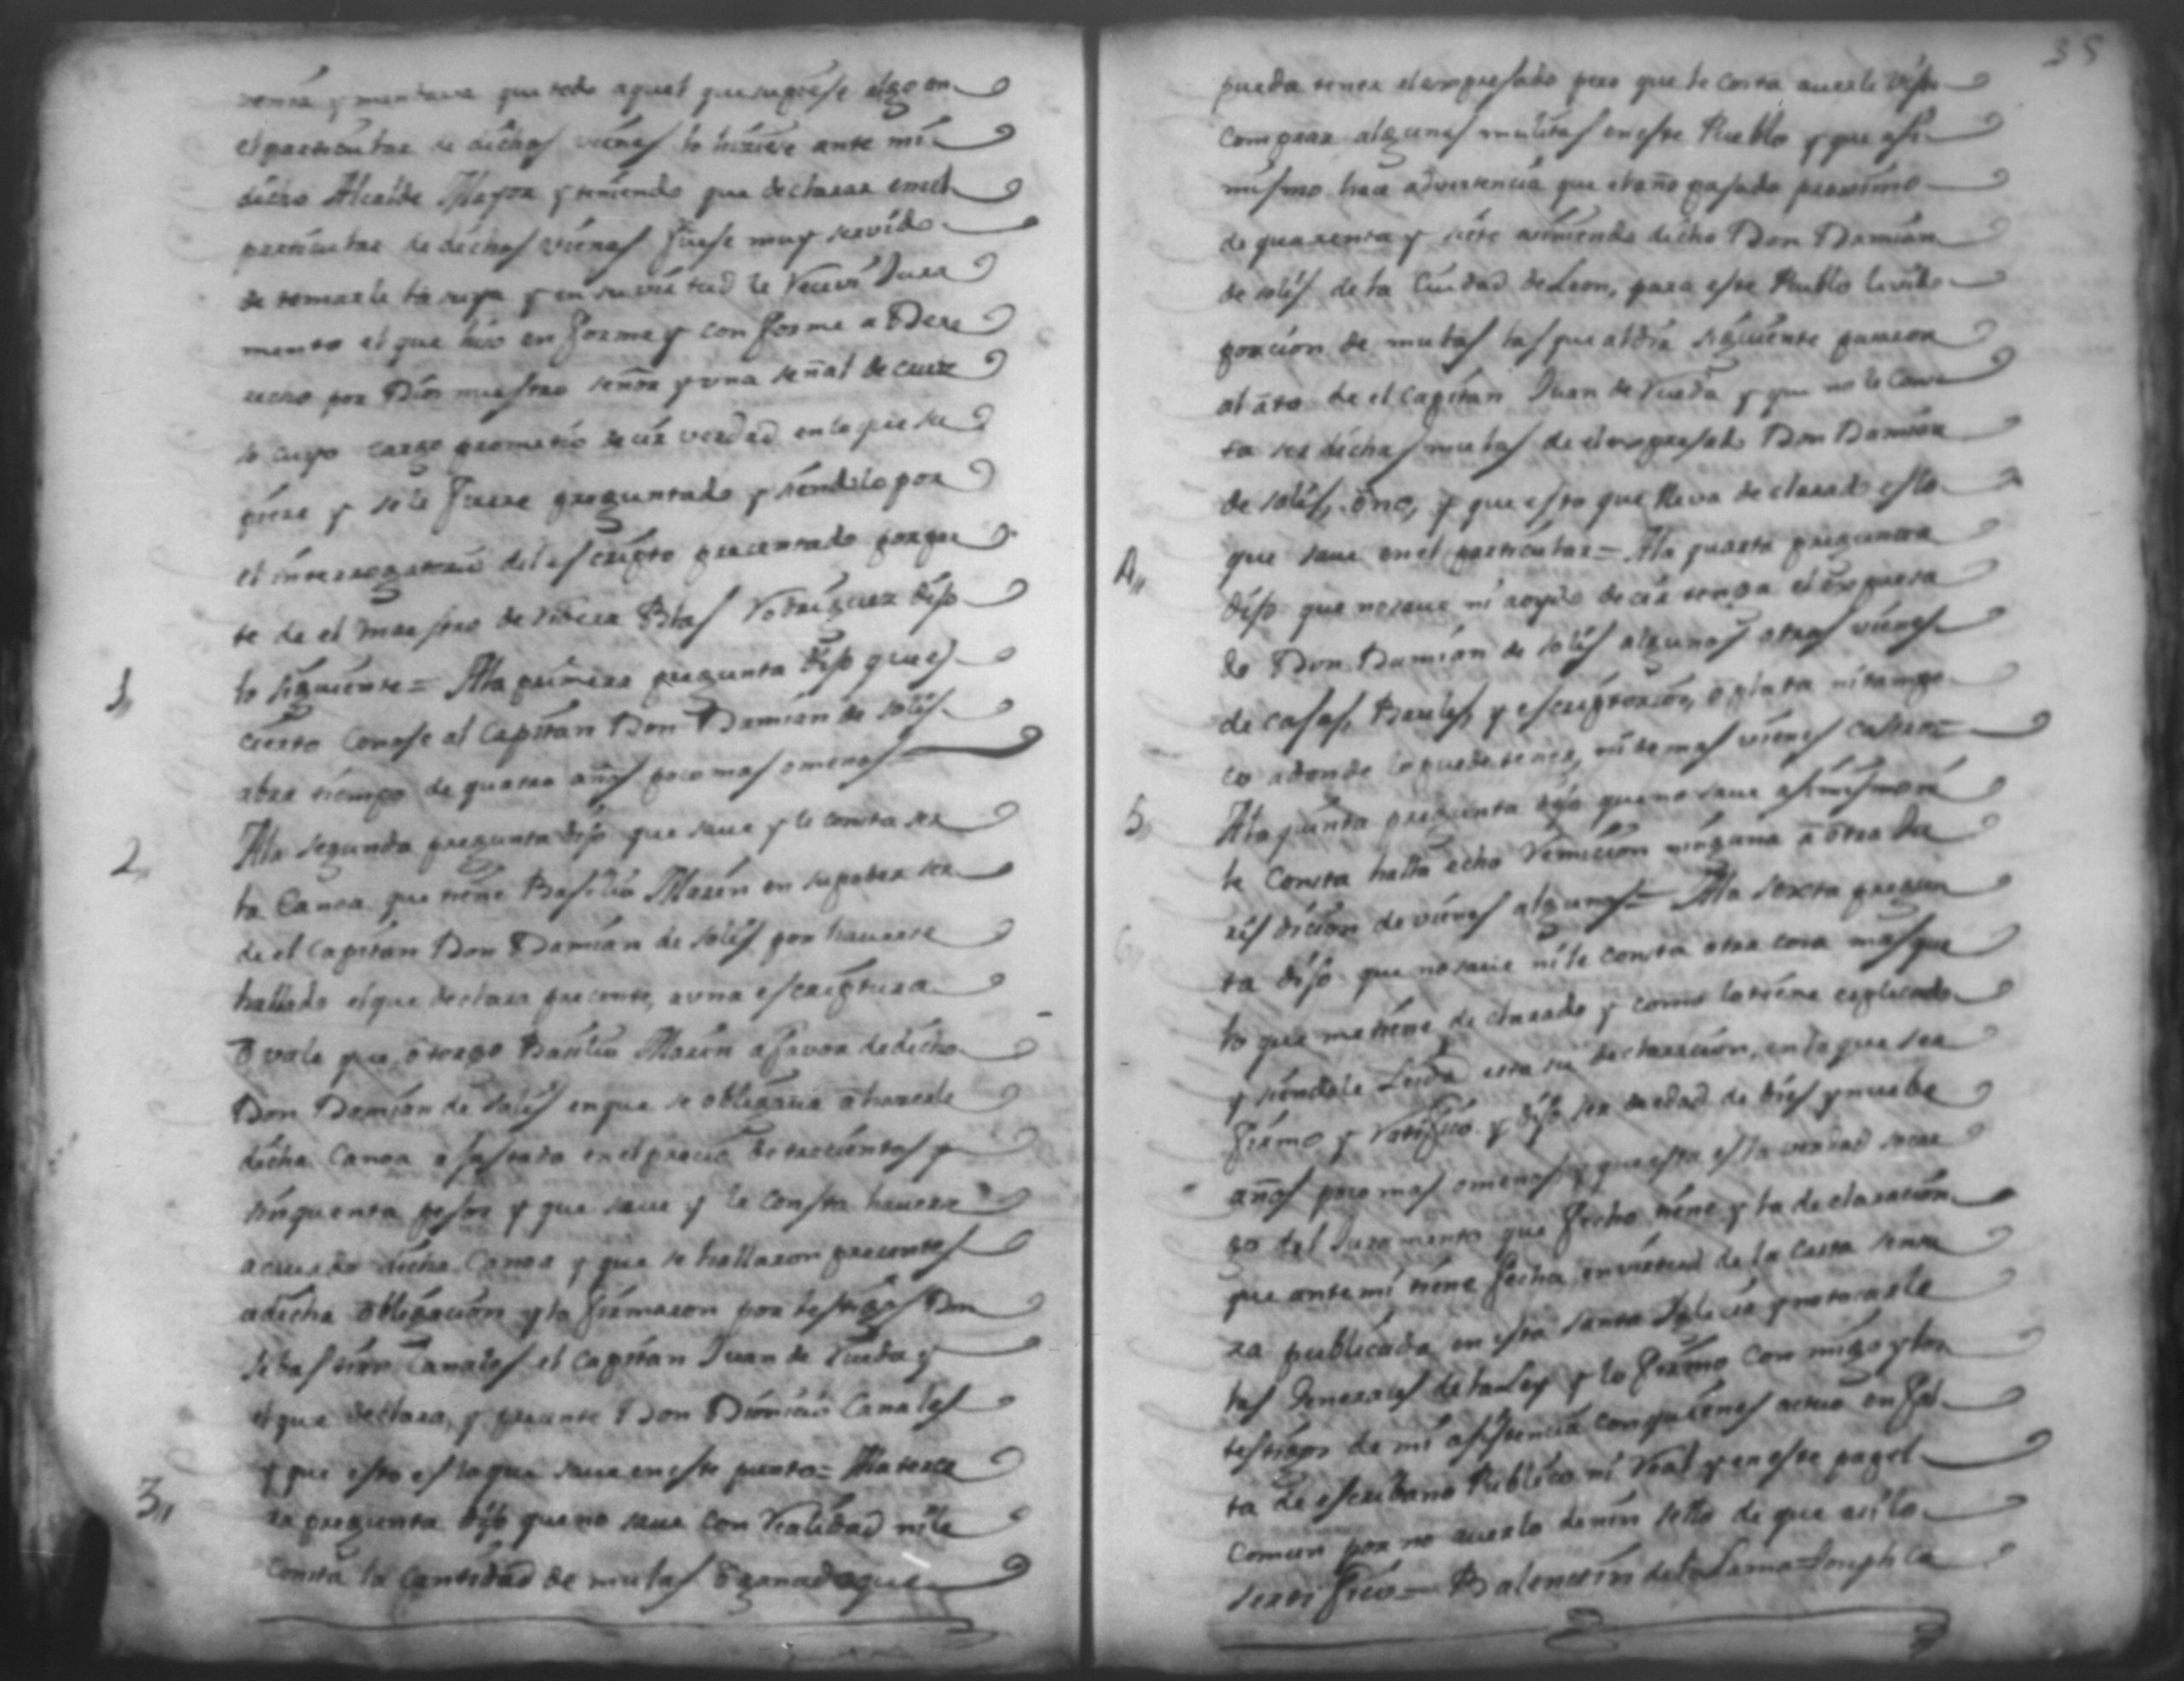 y mandava que todo aquel que supiese algo en
el particular de dichos vienes lo hiziere ante mi
dicho Alcalde Mayor y teniendo que declarar en el
particular de dichos vienes fuese muy servido
de tomarle la suya y en su virtud le Receví Jura
mento el que hizo en forma y conforme a Dere
recho por Dios nuestro señor y una señal de cruz
so cuyo cargo prometio decir verdad en lo que su
piere y se le fuere preguntado y siendolo por
el interrogatorio del escripto precentado por par
te de el maestro de rivera Blas Rodriguez dijo
1,, lo siguiente = Ala primera pregunta dijo que es
cierto Conose al Capitan Don Damian de solis
abra tiempo de quatro años poco mas o menos
2,, Ala segunda pregunta dijo que save y le consta ser
la Canoa que tiene Basilio Marin en su poder ser
de el Capitan Don Damian de solis por haverse
hallado el que declara precente, a una escriptura
o vale que otorgo Basilio Marin a favor de dicho
Don Damian de Solis en que se obligava a hacerle
dicha Canoa ajustada en el precio de trecientos y
sinquenta pesos y que save y le consta haverse
acavado dicha Canoa y que se hallaron precentes
a dicha obligacion y lo firmaron por testigos Don
Sebastian Canales el Capitan Juan de Rueda y
el que declara, y precente Don Dionicio Canales
y que esto es lo que save en este punto = Ala terce
3,, ra pregunta dijo que no save con Realidad ni le
consta la cantidad de mulas o ganado que
35
pueda tener el expresado pero que le costa averle visto
comprar algunas mulitas en este Pueblo y que asi
mismo hace advertencia que el año pasado proximo
de quarenta y siete viniendo dicho Don Damian
de solis de la Ciudad de Leon, para este Pueblo le vido
porcion de mulas las que al dia siguiente pasaron
al ato de el Capitan Juan de Rueda y que no le cons
ta ser dichas mulas de el expresado Don Damian
de solis, o no, y que esto que lleva declarado es lo
4,, que save en el particular = Ala quarta pregunta
dijo que no save ni a oydo decir tenga el expresa
do Don Damian de solis algunos otros vienes
de casas, Baules, y escriptorios, o plata ni tampo
co adonde lo puede tener, ni de mas vienes
5,, Ala quinta pregunta dijo que no save asimismo ni
le consta halla echo Remicion ninguna a otra Ju
6,, ris dicion de vienes algunos = Ala sexta pregun
ta dijo que no save ni le consta otra cosa mas que
lo que me tiene declarado y como lo tiene explicado
y siendole Leida esta su declaracion, en lo que se a
firmo y Ratifico y dijo ser de edad de dies y nuebe
años poco mas o menos y que esta es la verdad so car
go del Juramento que fecho tiene y la declaracion
que ante mi tiene fecha en virtud de la Carta sensu
ra publicada en esta Santa Iglecia y no tocarle
las Generales de la Ley y lo firmo con migo y los
testigos de mi asistencia con quienes actuo en fal
ta de escribano Publico ni Real y en este papel
comun por no averlo de nin sello de que asi lo
sertifico = Balentin de Lama = Joseph Ca